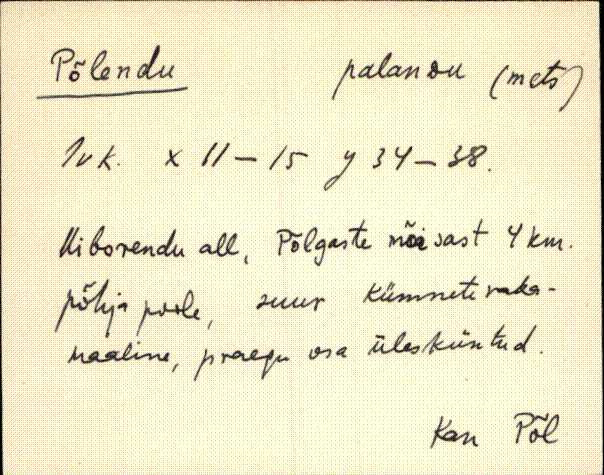 Põlendu palandu (mets)
x 11 – 15 y 34 – 38.
Kiborendu all, Põlgaste mõisast 4 km.
põhja poole, suur kümnetevaka-
maaline, praegu osa üles küntud.
Kan Põl